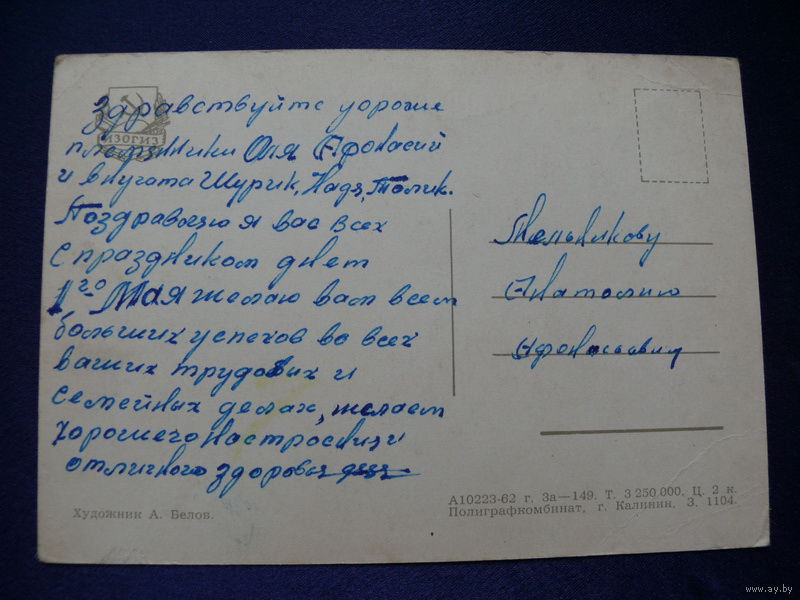 Здравствуйте уорогие
племянники Оля Афонасий
и внучата Шурик, Надя, Толик.
Поздравляю я вас всех
с праздником днем
1го Мая желаю вам всем
больших успехов во всех
ваших трудовых и
семейных делах, желаем
хорошего настроения и
отличного здоровья
Мельникову
Анатолию
Афонасьевичу
ИЗОГИЗ
Художник А. Белов.
А10223-62 г. За—149. Т. 3 250 000. Ц. 2 к.
Полиграфкомбинат, г. Калинин. З. 1104.
www.ay.by